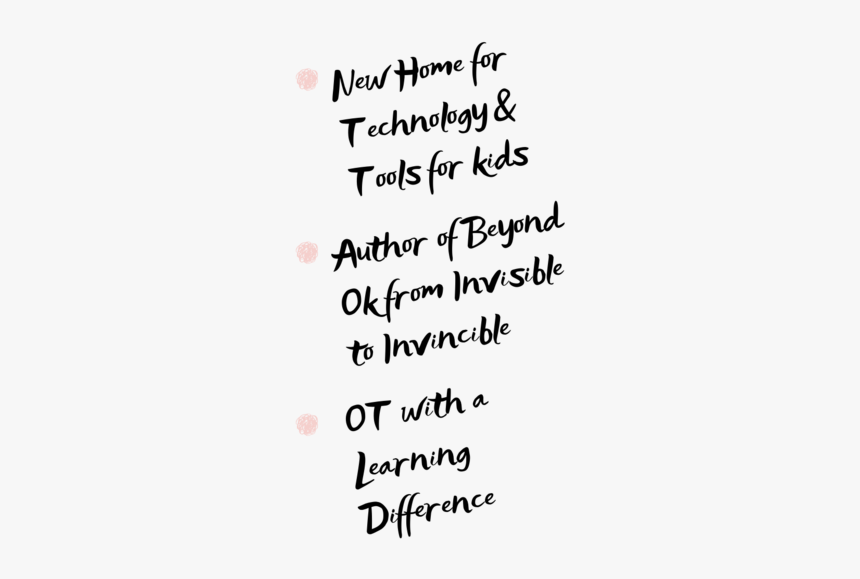 New Home for
Technology &
Tools for kids
Author of Beyond
Ok from Invisible
to Invincible
OT with a
Learning
Difference